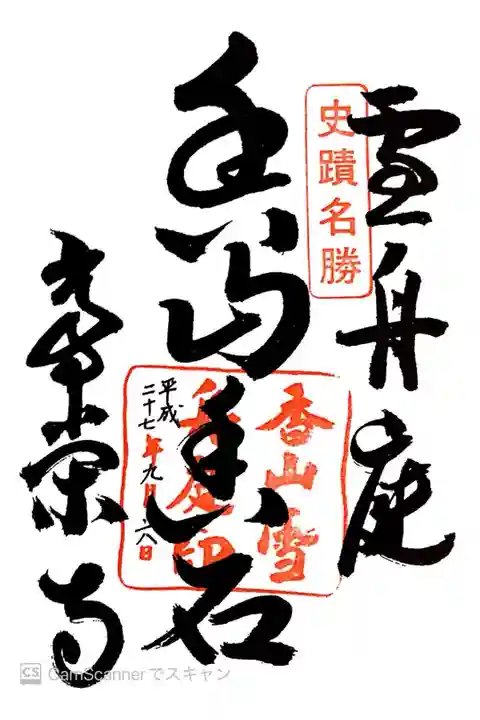 雪舟庭
史蹟名勝
香山雪
舟庭印
平成
二十七年九月二六日
常栄寺
CS CamScannerでスキャン